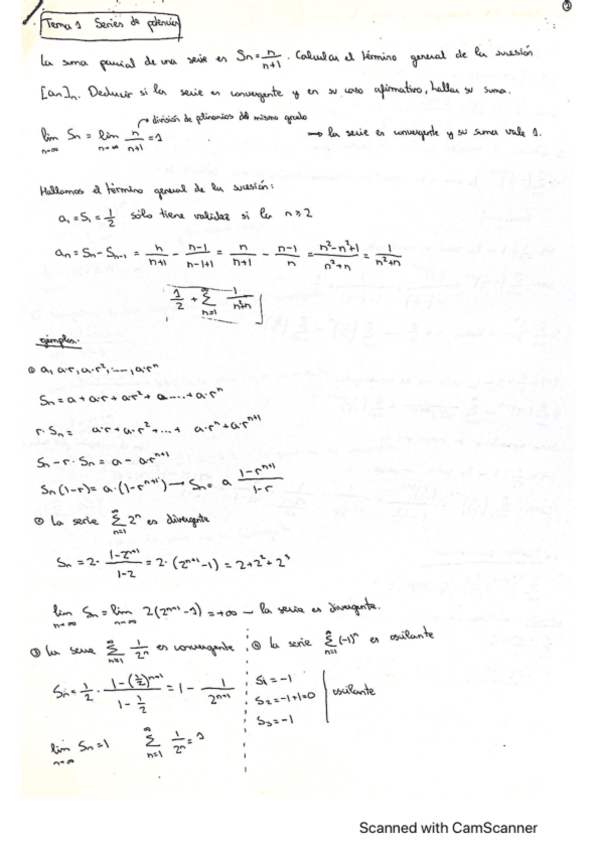 ①
Tema 1 Series de potencias
La suma parcial de una serie es Sn = n/(n+1). Calcular el término general de la sucesión
[an]n. Deducir si la serie es convergente y en su caso afirmativo, hallar su suma.
→ división de polinomios del mismo grado
lim n→∞ Sn = lim n→∞ n/(n+1) = 1 → la serie es convergente y su suma vale 1.
Hallamos el término general de la sucesión:
a₁ = S₁ = 1/2 sólo tiene validez si la n ≥ 2
an = Sn - Sn-1 = n/(n+1) - (n-1)/(n-1+1) = n/(n+1) - (n-1)/n = (n²-n²+1)/(n²+n) = 1/(n²+n)
1/2 + ∑ n=1 ∞ 1/(n²+n)
ejemplos.
① a, a·r, a·r², ..., a·rⁿ
Sn = a + a·r + a·r² + a.... + a·rⁿ
r·Sn = a·r + a·r² + ... + a·rⁿ + a·rⁿ⁺¹
Sn - r·Sn = a - a·rⁿ⁺¹
Sn(1-r) = a·(1-rⁿ⁺¹) → Sn = a (1-rⁿ⁺¹)/(1-r)
② La serie ∑ n=1 ∞ 2ⁿ es divergente
Sn = 2·(1-2ⁿ⁺¹)/(1-2) = 2·(2ⁿ⁺¹-1) = 2+2²+2³
lim n→∞ Sn = lim n→∞ 2(2ⁿ⁺¹-1) = +∞ — la serie es divergente.
③ La serie ∑ n=1 ∞ 1/2ⁿ es convergente
Sn = 1/2 · (1-(1/2)ⁿ⁺¹)/(1-1/2) = 1 - 1/2ⁿ⁺¹
lim n→∞ Sn = 1 ∑ n=1 ∞ 1/2ⁿ = 1
④ La serie ∑ n=1 ∞ (-1)ⁿ es oscilante
S₁ = -1
S₂ = -1+1 = 0 oscilante
S₃ = -1
Scanned with CamScanner